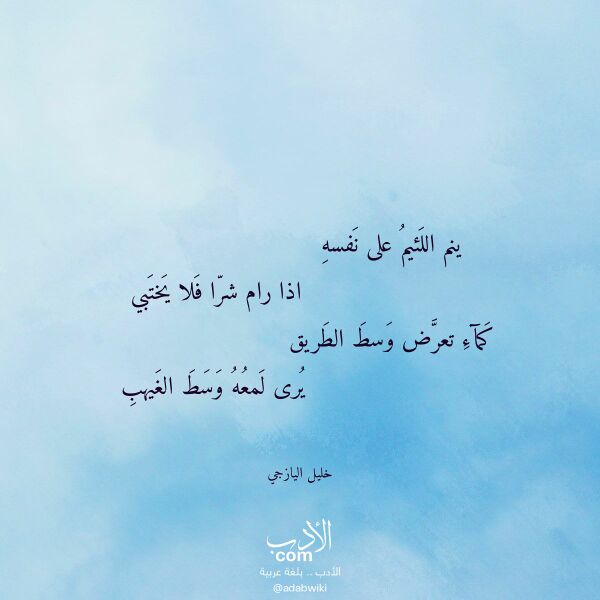 ينم اللَئيمُ على نَفسهِ
اذا رام شرّا فَلا يَختَبي
كَمَآءِ تعرَّض وَسطَ الطَريق
يُرى لَمعُهُ وَسَطَ الغَيهبِ
خليل اليازجي
الأدب
com
الأدب .. بلغة عربية
@adabwiki